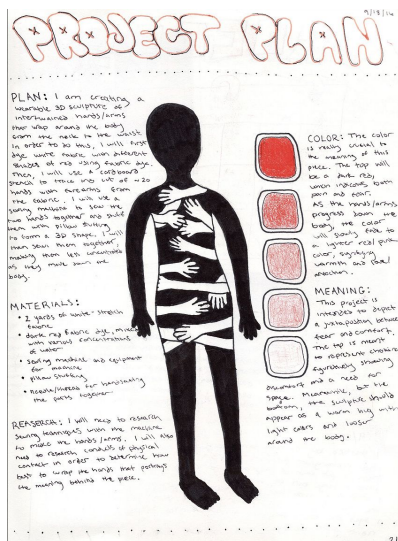 9/18/14
PROJECT PLAN
PLAN: I am creating a
wearable 3D sculpture of
intertwined hands/arms
that wrap around the body
from the neck to the waist.
In order to do this, I will first
dye white fabric with different
shades of red using fabric dye.
Then, I will use a cardboard
stencil to trace and cut of ~20
hands with forearms from
the fabric. I will use a
sewing machine to sew the
two hands together and stuff
them with pillow stuffing
to form a 3D shape. I will
then sewn them together,
making them less concentrated
as they move down the
body.
MATERIALS:
• 2 yards of white stretchy
fabric
• dark red fabric dye, mixed
with various concentrations
of water
• sewing machine and equipment
for machine
• pillow stuffing
• needle/thread for handsewing
the parts together
REASERCH: I will need to research
sewing techniques with the machine
to make the hands/arms. I will also
need to research conducts of physical
contact in order to determine how
best to wrap the hands that portrays
the meaning behind the piece.
COLOR: The color
is really crucial to
the meaning of this
piece. The top will
be a dark red,
which indicates both
pain and fear.
AS the hands/arms
progress down the
body, the color
will slowly fade to
a lighter red/pink
color, signifying
warmth and
affection.
MEANING:
This project is
intended to depict
a juxtaposition between
fear and comfort.
The top is meant
to represent choking
figuratively showing
discomfort and a need for
space. Meanwhile, at the
bottom, the sculpture should
appear as a warm hug with
light colors and looser
around the body.